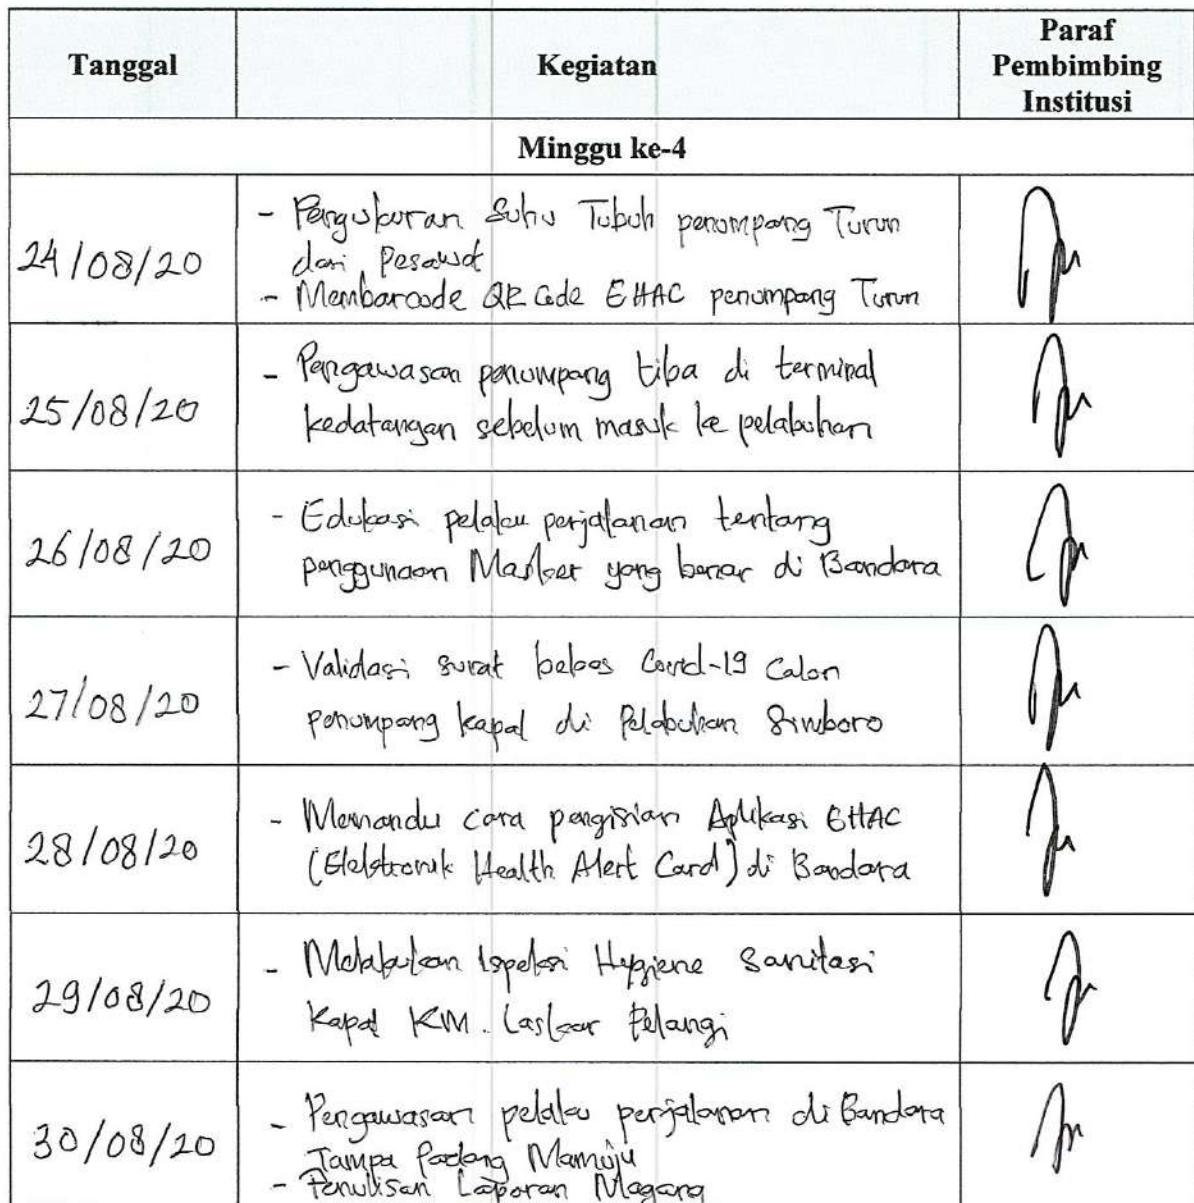 Tanggal
Kegiatan
Paraf
Pembimbing
Institusi
Minggu ke-4
24/08/20
- Pengukuran Suhu Tubuh penumpang Turun
dari Pesawat
- Membarcode QR Code EHAC penumpang Turun
25/08/20
- Pengawasan penumpang tiba di terminal
kedatangan sebelum masuk ke pelabuhan
26/08/20
- Edukasi pelaku perjalanan tentang
penggunaan Masker yang benar di Bandara
27/08/20
- Validasi surat bebas Covid-19 Calon
penumpang kapal di Pelabuhan Simboro
28/08/20
- Memandu cara pengisian Aplikasi EHAC
(Elektronik Health Alert Card) di Bandara
29/08/20
- Melakukan Ispeksi Hygiene Sanitasi
Kapal KM. Laskar Pelangi
30/08/20
- Pengawasan pelaku perjalanan di Bandara
Tampa Padang Mamuju
- Penulisan Laporan Magang